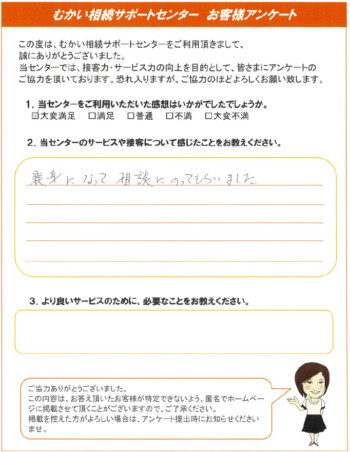 むかい相続サポートセンター　お客様アンケート
この度は、むかい相続サポートセンターをご利用頂きまして、
誠にありがとうございました。
当センターでは、接客力・サービス力の向上を目的として、皆さまにアンケートの
ご協力を頂いております。恐れ入りますが、ご協力のほどよろしくお願い致します。
１．当センターをご利用いただいた感想はいかがでしたでしょうか。
☑大変満足　□満足　□普通　□不満　□大変不満
２．当センターのサービスや接客について感じたことをお教えください。
親身になって 相談にのってもらいました
３．より良いサービスのために、必要なことをお教えください。
ご協力ありがとうございました。
この内容は、お答え頂いたお客様が特定できないよう、匿名でホームペー
ジに掲載させて頂くことがございますので、ご了承ください。
掲載を控えた方がよろしい場合は、アンケート提出時にお知らせください
ませ。